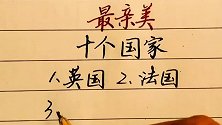 最亲美
十个国家
1.英国 2.法国
3.